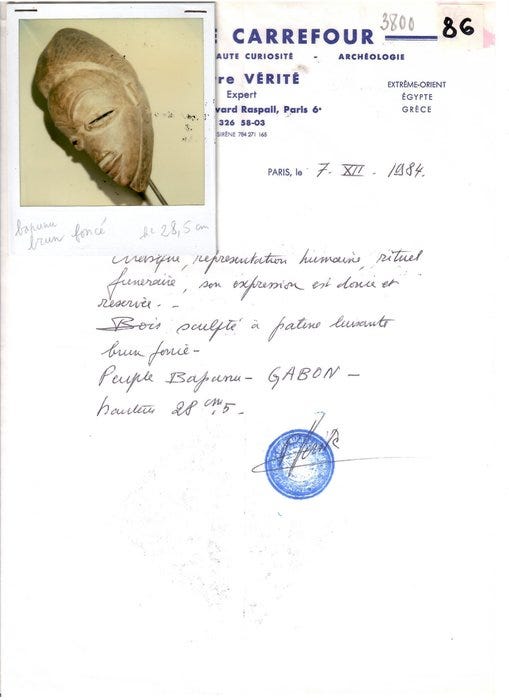 E CARREFOUR
3800
86
AUTE CURIOSITÉ - ARCHÉOLOGIE
re VÉRITÉ
Expert
vard Raspail, Paris 6e
326 58-03
SIRÈNE 784 271 165
EXTRÊME-ORIENT
ÉGYPTE
GRÈCE
PARIS, le 7. XII. 1984.
bapunu
brun foncé
ht 28,5 cm
Masque, représentation humaine, rituel
funéraire, son expression est douce et
réservée. -
Bois sculpté à patine luisante
brun foncé -
Peuple Bapunu - GABON -
hauteur 28 cm,5 -